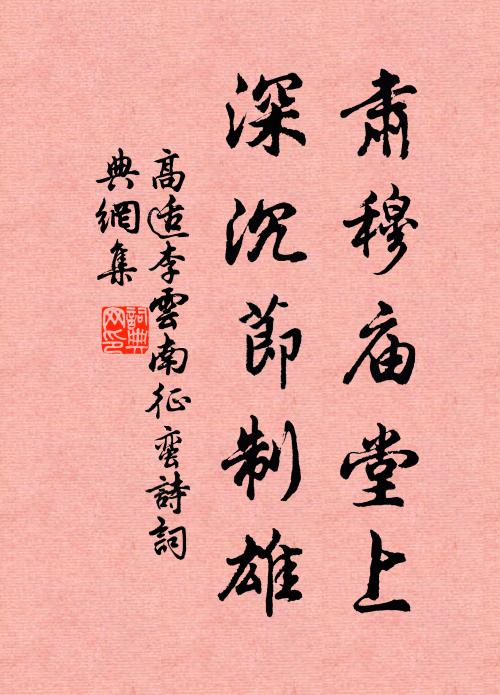 肅穆庙堂上
深沉節制雄
高适李雲南征蛮詩詞
典網集
詞典
网印